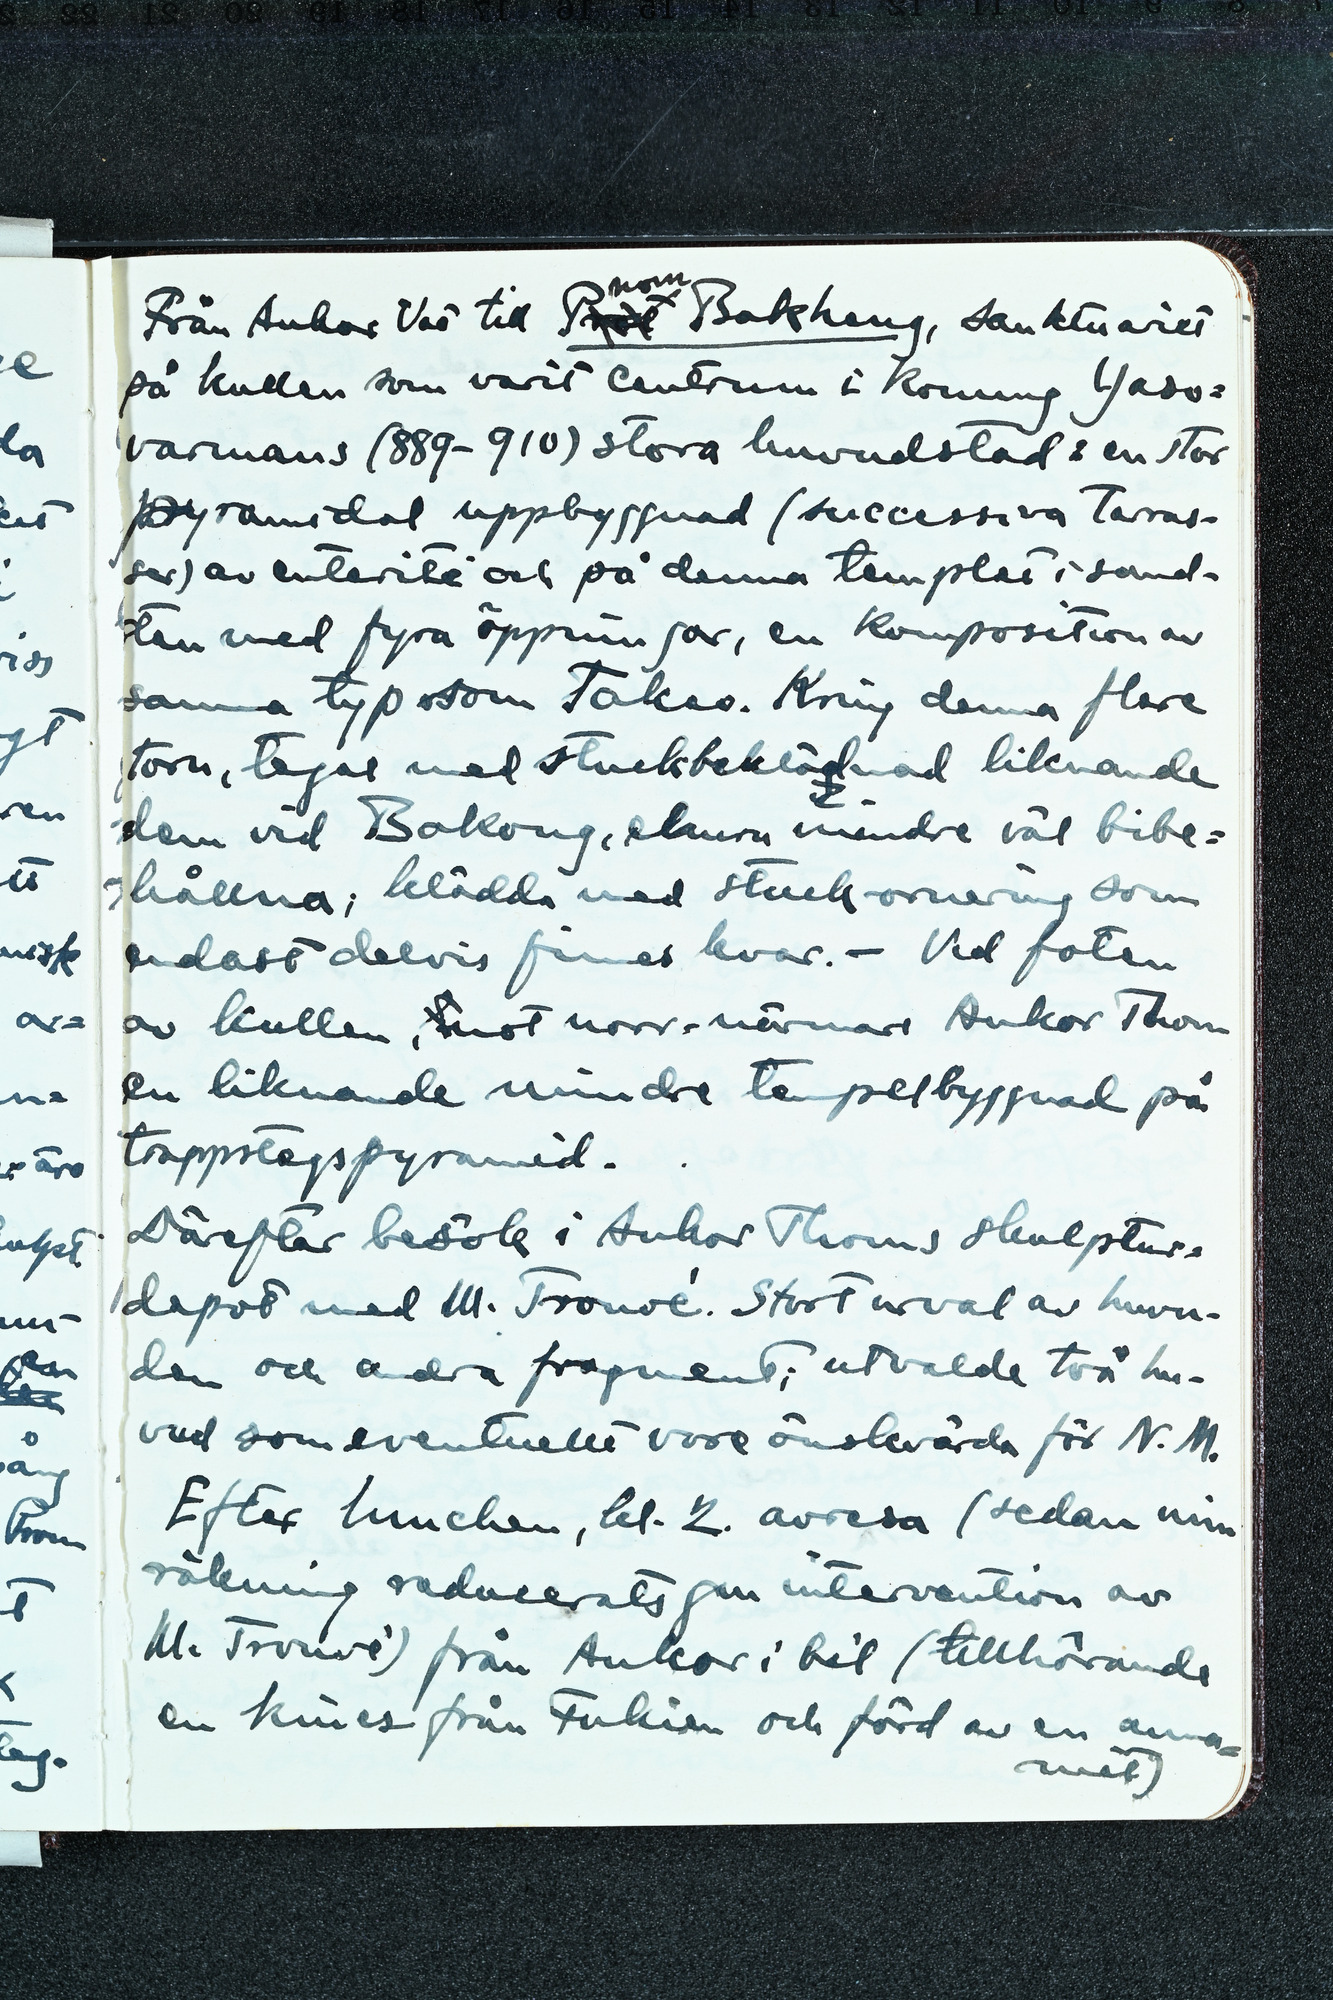 Från Ankor Vat till Pnom Bakheng, sanktuariet
på kullen som varit centrum i konung Yaso=
varmans (889-910) stora huvudstad: en stor
pyramidal uppbyggnad (successiva Terras-
ser) av enterité och på denna templet i sand-
sten med fyra öppningar, en komposition av
samma typ som Takeo. Kring denna flere
torn, tegel med stuckbeklädnad liknande
dem vid Bakong, ehuru mindre väl bibe=
hållna; klädda med stuck-ornering som
endast delvis finnes kvar. — Vid foten
av kullen, mot norr-närmare Ankor Thom
en liknande mindre tempelbyggnad på
trappstegspyramid.
Därefter besök i Ankor Thoms skulptur=
depot med M. Trouvé. Stort urval av huvu-
den och andra fragment; utvalde två hu-
vud som eventuellt vore önskvärda för N. M.
Efter lunchen, kl. 2. avresa (sedan min
räkning reducerats gm intervention av
M. Trouvé) från Ankor i bil (tillhörande
en kines från Fukien och förd av en anna=
mit)